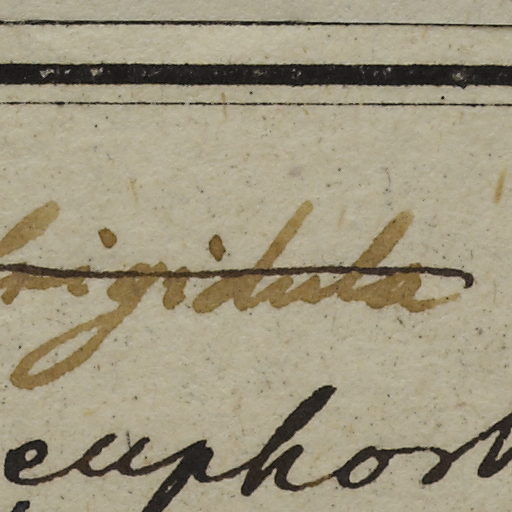 rigidula
euphor